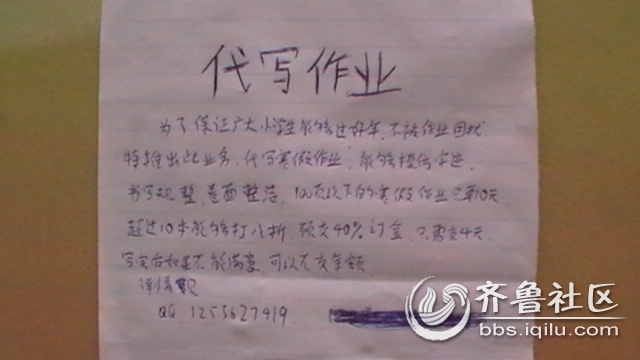 代写作业
为了保证广大小学生能够过好年,不被作业困扰,
特推出此业务,代写寒假作业,能够模仿字迹,
书写规整,卷面整洁,100页以下的寒假作业只要10天,
超过10本能够打八折,预交40%订金,只需交4天,
写完后如果不能满意,可以不交余额
详情
QQ 1255627419.
齐鲁社区
bbs.iqilu.com